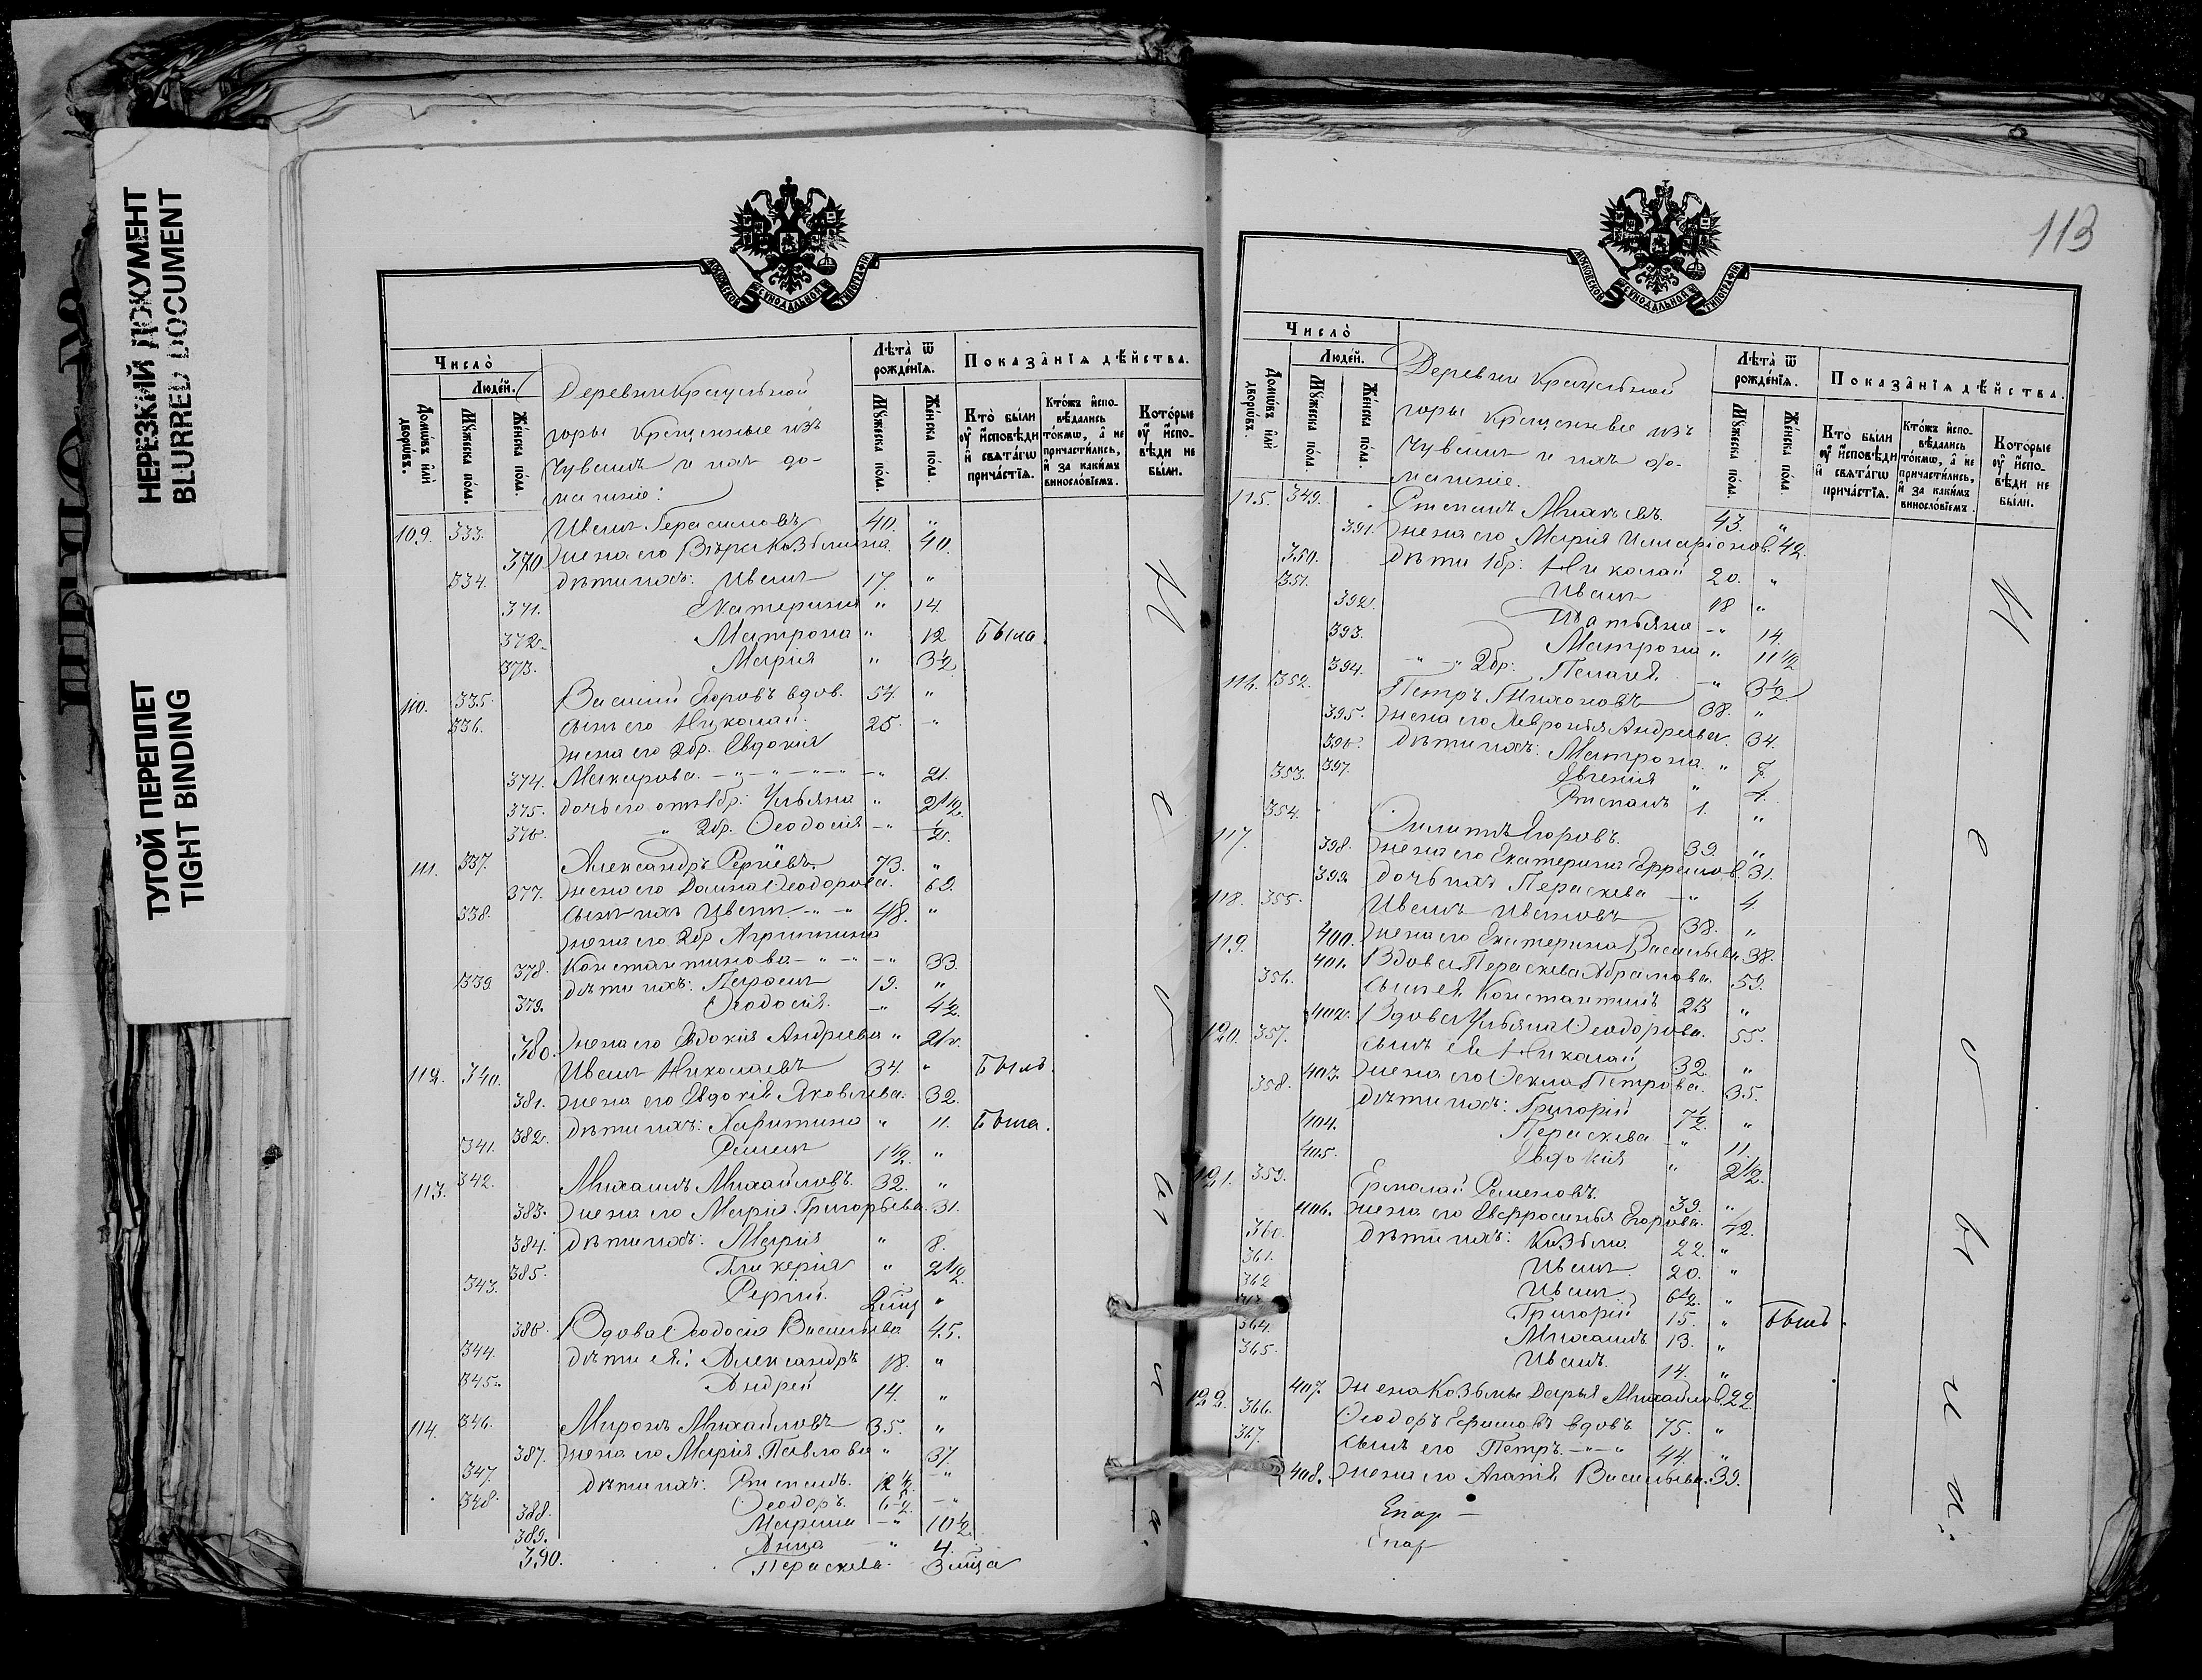 НЕРЕЗКИЙ ДОКУМЕНТ
BLURRED DOCUMENT
ТУГОЙ ПЕРЕПЛЕТ
TIGHT BINDING
МОСКОВСКОЙ СѴНОДАЛЬНОЙ ТИПОГРАФІИ
Число̀
Людей.
Домѡвъ и҆лѝ дворѡвъ.
Мꙋжеска по́ла.
Же́нска по́ла.
Деревни
горы Крещенные изъ
Чувашъ и ихъ до-
машніе:
Лѣта̀ ѿ рожде́нїѧ.
Мꙋжеска по́ла.
Же́нска по́ла.
Показа̂нїѧ дѣ́йства.
Кто̀ бы́ли ᲂу҆ и҆сповѣди и҆ свѧта́гѡ прича́стїѧ.
Кто́жъ и҆спо-вѣдались то́кмѡ, а҆ не причасти́лись, и҆ за каки́мъ винослові́емъ.
Кото́рые ᲂу҆ и҆спо-вѣди не бы́ли.
109. 333. Иванъ Герасимовъ 40. "
370 жена его Вѣра Козьмина. 40.
334. дѣти ихъ: Иванъ 17. "
371. Екатерина " 14.
372. Матрона " 12 Была.
373. Марія " 3½
110. 335. Василій Егоровъ вдов. 54. "
336. сынъ его Николай. 25. "
жена его 2бр. Евдокія
374. Макарова 21.
375. дочь его отъ 1бр: Ульяна " 2½
376. " 2бр. Ѳеодосія ½.
111. 337. Александръ Сергіевъ 73. "
377. жена его Домна Ѳеодорова. 69.
338. сынъ ихъ Иванъ 48. "
жена его 2бр Агрипина
378. Константинова 33.
339 дѣти ихъ: Герасимъ 19. "
379. Ѳеодосія. 4½.
380. жена его Евдокія Андреева " 21.
112. 340. Иванъ Николаевъ 34. " Былъ.
381. жена его Евдокія Яковлева. 32.
382. дѣти ихъ: Харитина " 11. Была.
341. Семенъ 1½. "
113. 342. Михаилъ Михайловъ. 32. "
383. жена его Марія Григорьева. 31.
384. дѣти ихъ: Марія " 8.
385. Гликерія " 2½
343. Сергій. "
386. Вдова Ѳеодосія Васильева 45.
344. дѣти ея: Александръ 18. "
345. Андрей 14. "
114. 346. Миронъ Михайловъ 35. "
387. жена его Марія Павлова " 37.
347. дѣти ихъ: Степанъ. 12½ "
348. Ѳеодоръ. 6½ "
388. Марина " 10½.
389. Анна " 4.
390. Параскева.
113
Число̀
Людей.
Домѡвъ и҆лѝ дворѡвъ.
Мꙋжеска по́ла.
Же́нска по́ла.
Деревни
горы Крещенные изъ
Чувашъ и ихъ до-
машніе.
Лѣта̀ ѿ рожде́нїѧ.
Мꙋжеска по́ла
Же́нска по́ла
Показа̂нїѧ дѣ́йства.
Кто̀ бы́ли ᲂу҆ и҆сповѣди и҆ свѧта́гѡ прича́стїѧ.
Кто́жъ и҆спо-вѣдались то́кмѡ, а҆ не причасти́лись, и҆ за каки́мъ винослові́емъ.
Кото́рые ᲂу҆ и҆спо-вѣди не бы́ли.
115. 349. Степанъ Михѣевъ. 43. "
391. жена его Марія Иларіонов. 42.
350. дѣти 1бр: Николай 20. "
351. Иванъ 18 "
392. Татьяна " 14
393. Матрона " 11½
394. 2бр: Пелагея. " 3½
116. 352. Петръ Тихоновъ 38. "
395. жена его Февронія Андреева. 34.
396. дѣти ихъ: Матрона. " 7.
397. Евгенія " 4.
353. Степанъ 1. "
117. 354. Филипъ Егоровъ. 39. "
398. жена его Екатерина Ефремов. 31.
399. дочь ихъ Параскева " 4.
118. 355. Иванъ Ивановъ 38. "
400. жена его Екатерина Васильева 38.
119. 401. Вдова Параскева Абрамова. 59.
356. сынъ ея Константинъ 23 "
402. Вдова Ульяна Ѳеодорова. 55.
120. 357. сынъ ея Николай 32. "
403. жена его Ѳекла Петрова. 35.
358. дѣти ихъ: Григорій 7½. "
404. Параскева " 11.
405. Евдокія " 2½.
121. 359. Ермолай Семеновъ. 39. "
406. жена его Евфросинья Егорова. 42.
360. дѣти ихъ: Козьма. 22. "
361. Иванъ. 20. "
362 Иванъ 6½. "
Григорій 15. " Былъ.
364. Михаилъ. 13. "
365. Иванъ. 14. "
407. жена Козьмы Дарья Михайлов. 22.
122. 366. Ѳеодоръ Ефимовъ вдовъ 75. "
367. сынъ его Петръ 44. "
408. жена его Агафія Васильева. 39.